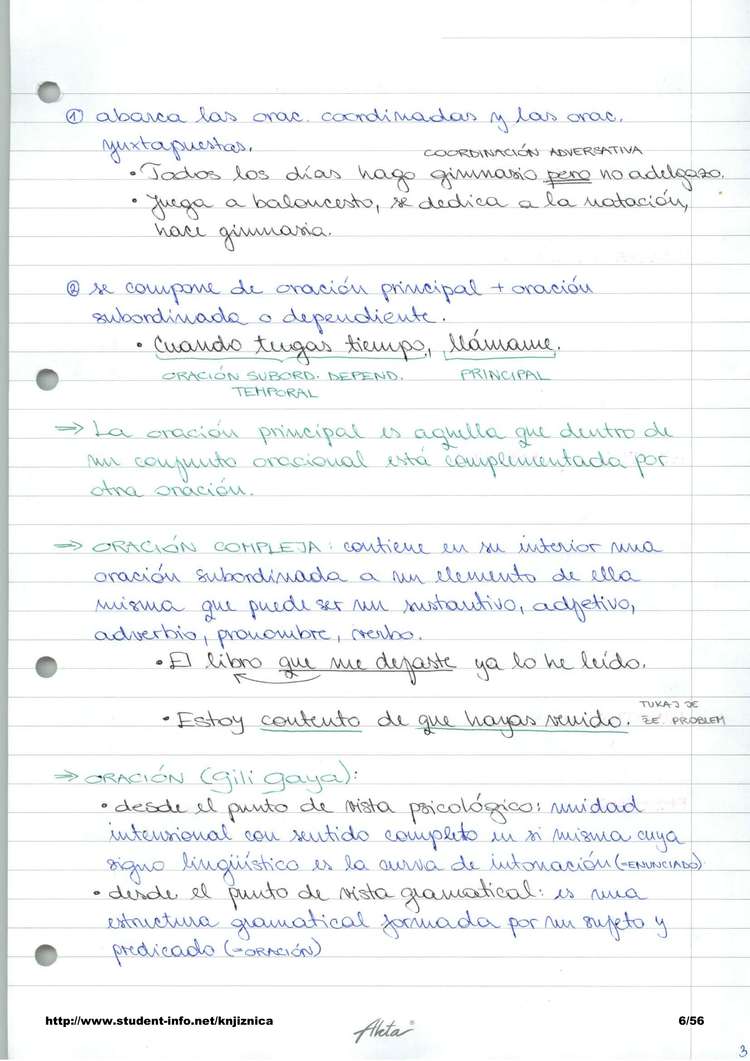 ① abarca las orac. coordinadas y las orac.
yuxtapuestas.
COORDINACIÓN ADVERSATIVA
• Todos los días hago gimnasio pero no adelgazo.
• Juega a baloncesto, se dedica a la natación,
hace gimnasia.
② se compone de oración principal + oración
subordinada o dependiente.
• Cuando tengas tiempo, llámame.
ORACIÓN SUBORD. DEPEND. PRINCIPAL
TEMPORAL
⇒ La oración principal es aquella que dentro de
un conjunto oracional está complementada por
otra oración.
⇒ ORACIÓN COMPLEJA: contiene en su interior una
oración subordinada a un elemento de ella
misma que puede ser un sustantivo, adjetivo,
adverbio, pronombre, verbo.
• El libro que me dejaste ya lo he leído.
• Estoy contento de que hayas venido. TUKAJ JE
ŽE PROBLEM
⇒ ORACIÓN (gili gaya):
• desde el punto de vista psicológico: unidad
intensional con sentido completo en si misma cuya
signo lingüístico es la curva de intonación (=ENUNCIADO)
• desde el punto de vista gramatical: es una
estructura gramatical formada por un sujeto y
predicado (=ORACIÓN)
http://www.student-info.net/knjiznica
Akta
6/56
3